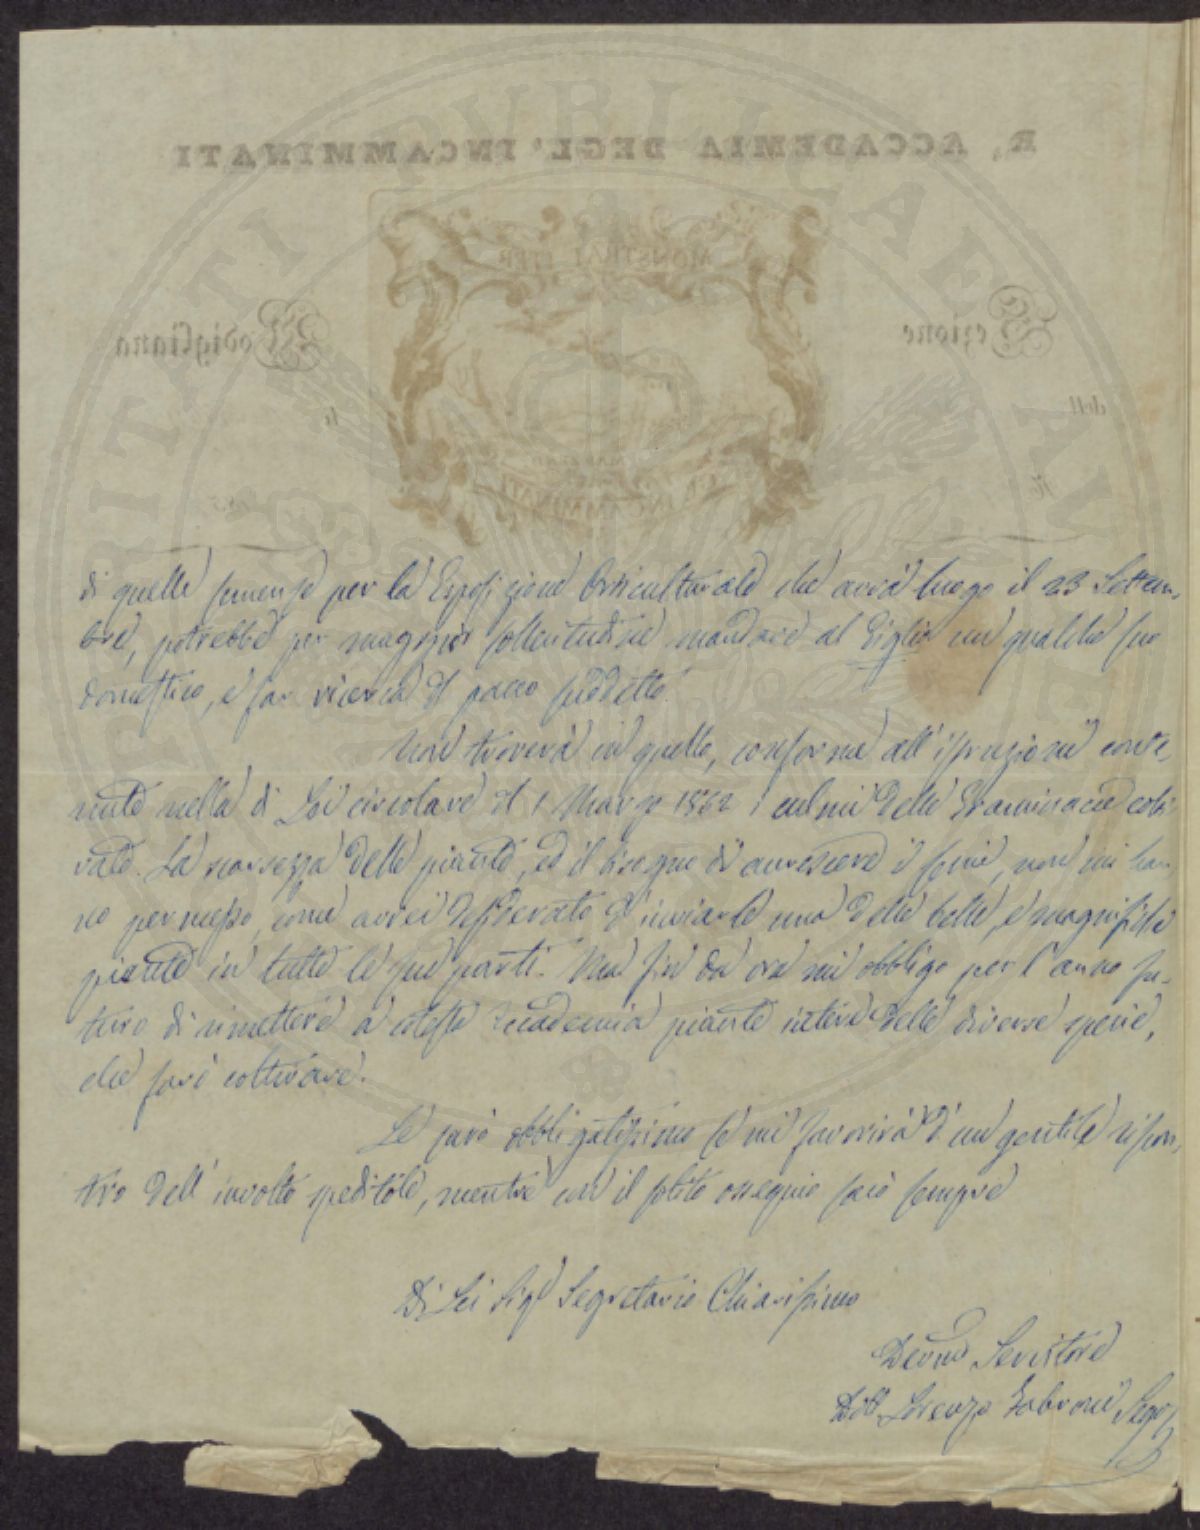 R. ACCADEMIA DEGL'INCAMMINATI
MONSTRAT ITER
Sezione
Modigliana
dell
li
N.
INCAMMINATI
di quelle semenze per la Esposizione Orticulturale che avrà luogo il 23 Settem-
bre, potrebbe per maggior sollecitudine mandare al Giglio un qualche suo
domestico, e far ricerca del pacco suddetto.
Non troverà in quello, conforme all'istruzioni conte-
nute nella di Lei circolare del 1 Marzo 1862 i culmi delle Graminacee colti-
vate. La scarsezza delle piante, ed il bisogno di accrescere il seme, non mi han-
no permesso, come avrei desiderato d'inviarle una delle belle, e magnifiche
piante in tutte le sue parti. Ma fin da ora mi obbligo per l'anno fu-
turo di rimettere a cotesta Accademia piante intere delle diverse specie,
che farò coltivare.
Le sarò obbligatissimo se mi favorirà d'un gentile riscon-
tro dell'involto speditole, mentre con il solito ossequio sarò sempre
Di Lei Sig.r Segretario Chiarissimo
Devmo Servitore
Dott. Lorenzo Fabroni Segr.